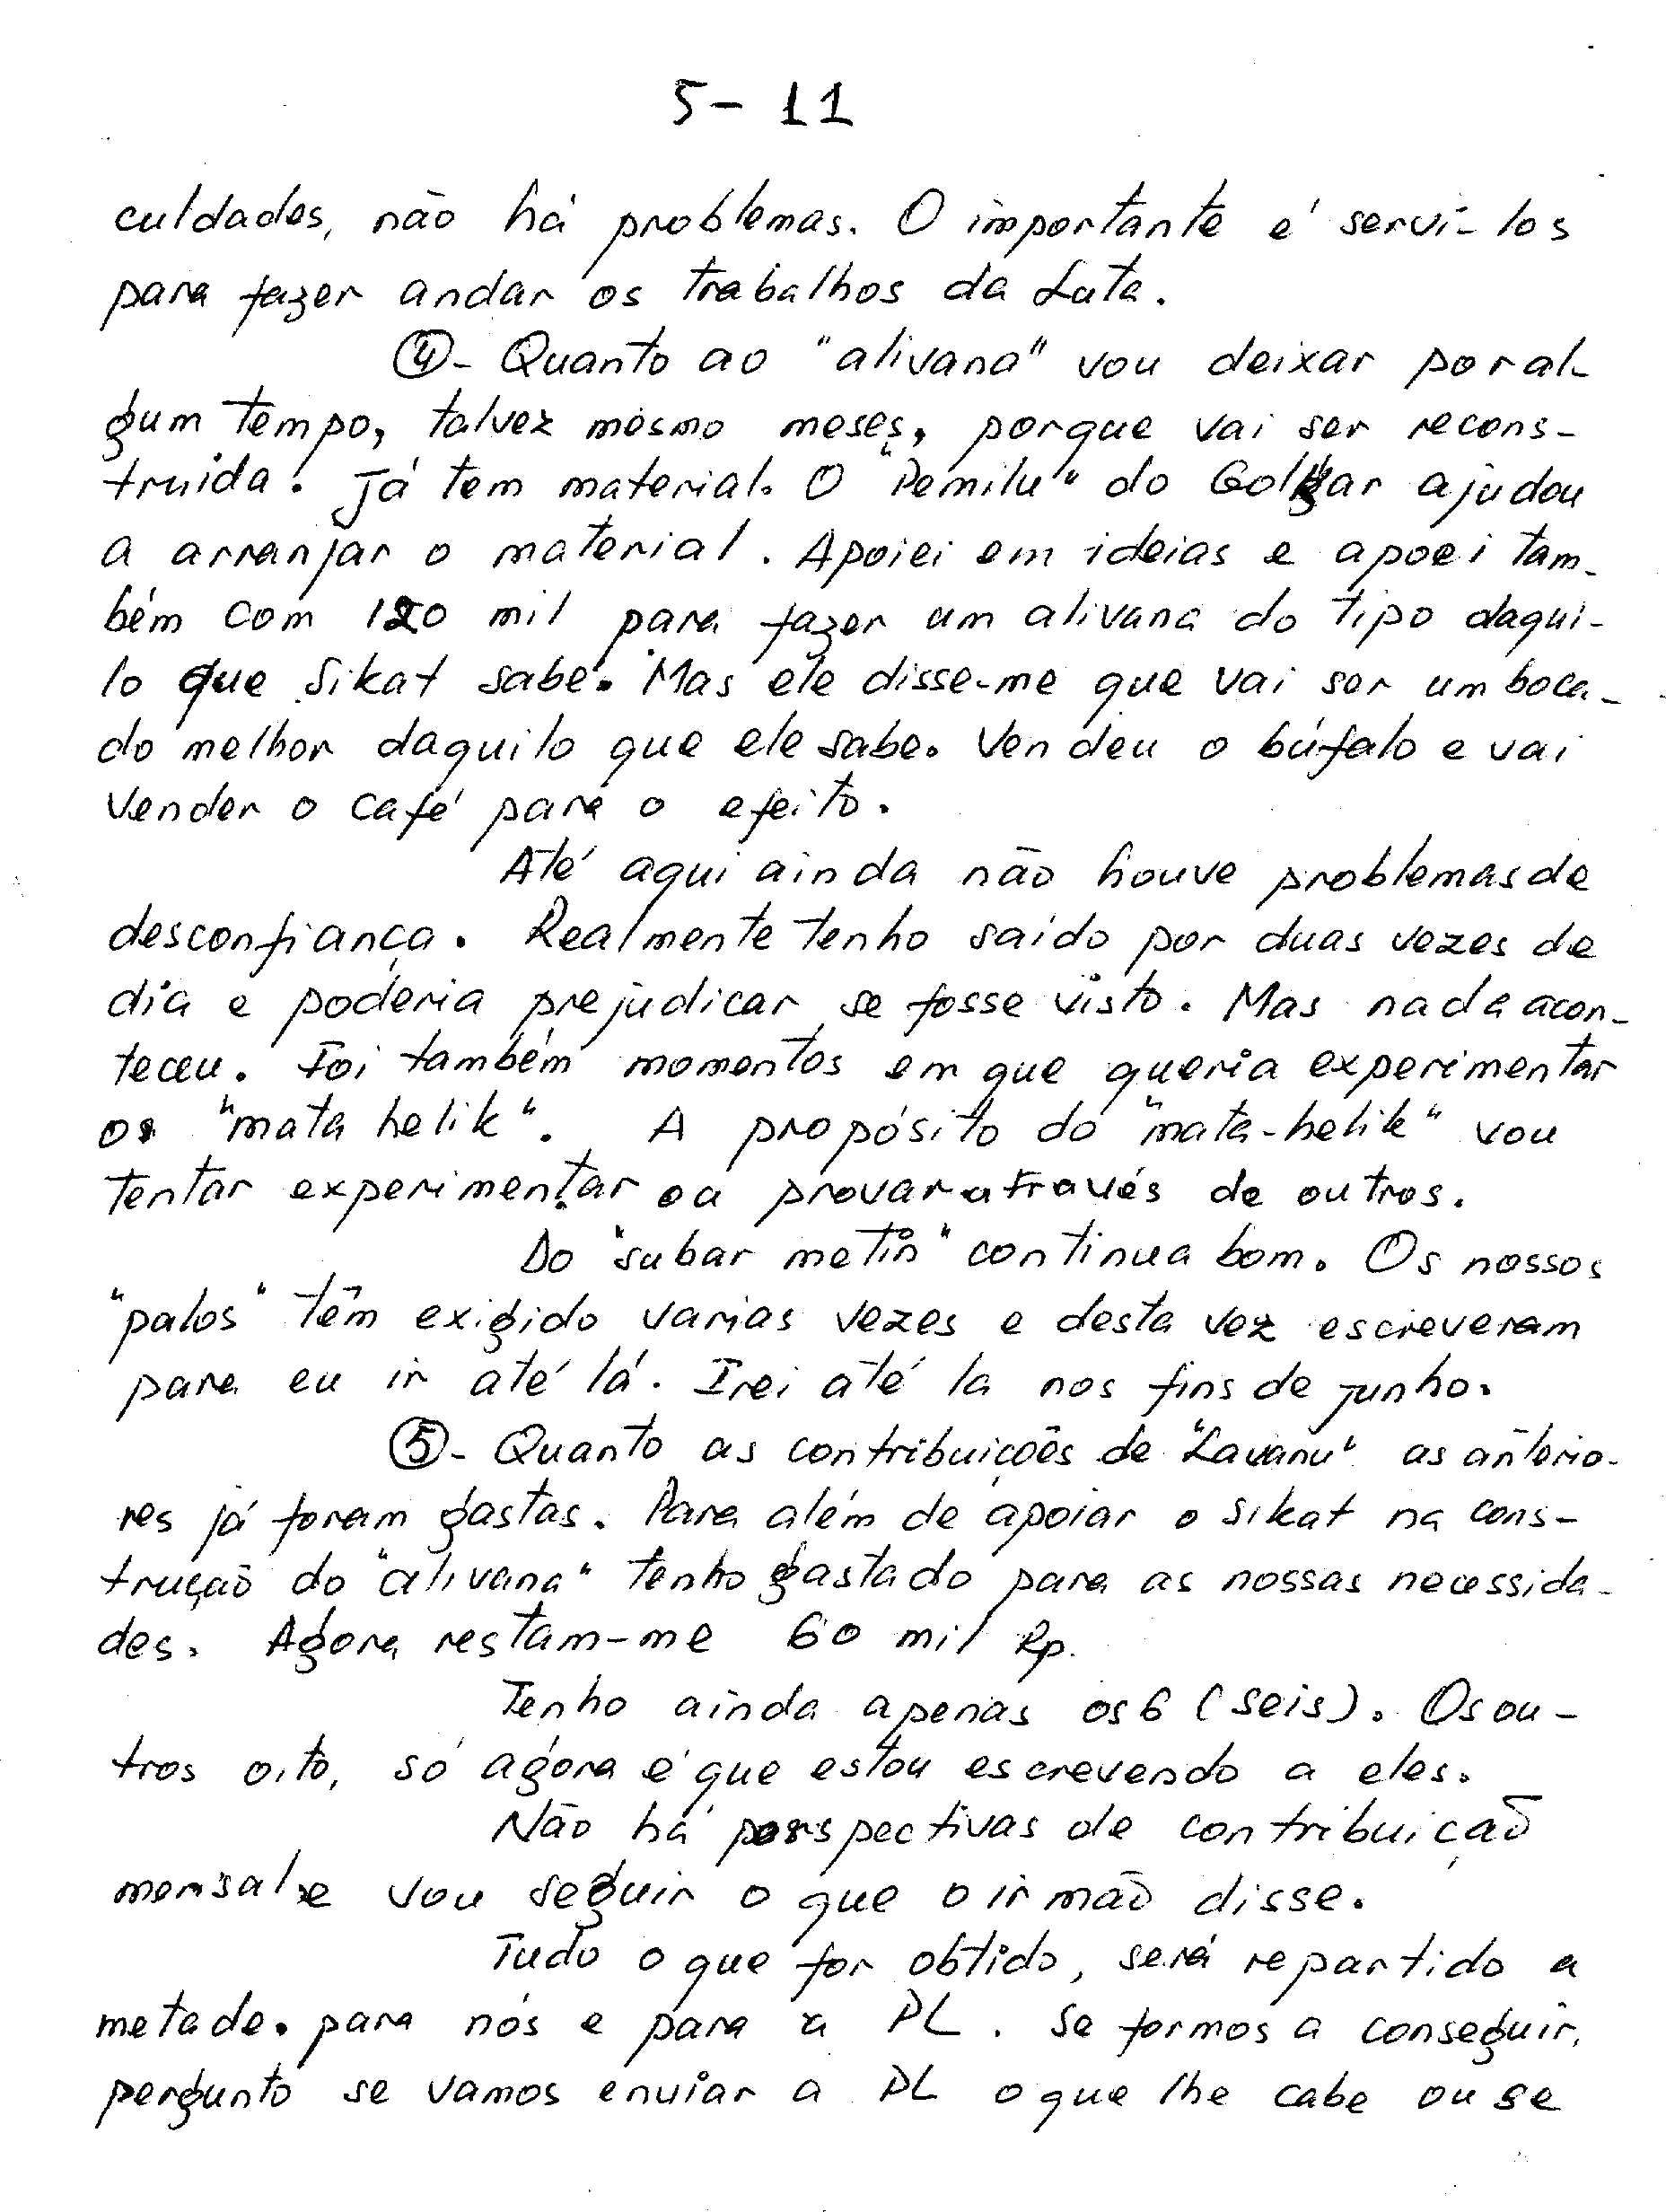 5 - 11
culdades, não há problemas. O importante é serví-los
para fazer andar os trabalhos da Luta.
④- Quanto ao "alivana" vou deixar por al-
gum tempo, talvez mesmo meses, porque vai ser recons-
truida. Já tem material. O "Pemilu" do Golkar ajudou
a arranjar o material. Apoiei em ideias e apoei tam-
bém com 120 mil para fazer um alivana do tipo daqui-
lo que Sikat sabe. Mas ele disse-me que vai ser um boca-
do melhor daquilo que ele sabe. Vendeu o búfalo e vai
vender o café para o efeito.
Até aqui ainda não houve problemas de
desconfiança. Realmente tenho saído por duas vezes de
dia e poderia prejudicar se fosse visto. Mas nada acon-
teceu. Foi também momentos em que queria experimentar
os "mata helik". A propósito do "mata-helik" vou
tentar experimentar ou provar através de outros.
Do "subar metin" continua bom. Os nossos
"palos" têm exigido varias vezes e desta vez escreveram
para eu ir até lá. Irei até la nos fins de junho.
⑤- Quanto as contribuições de "Lavanu" as anterio-
res já foram gastas. Para além de apoiar o Sikat na cons-
trução do "alivana" tenho gastado para as nossas necessida-
des. Agora restam-me 60 mil Rp.
Tenho ainda apenas os 6 (seis). Os ou-
tros oito, só agora é que estou escrevendo a eles.
Não há perspectivas de contribuição
mensal e vou seguir o que o irmão disse.
Tudo o que for obtido, será repartido a
metade. para nós e para a PL. Se formos a conseguir,
pergunto se vamos enviar a PL o que lhe cabe ou se